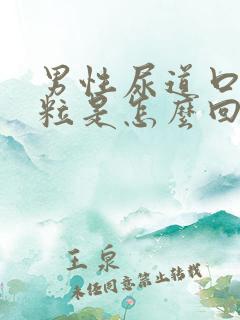 男性尿道口
粒是怎麼回
王泉
未经同意禁止转载